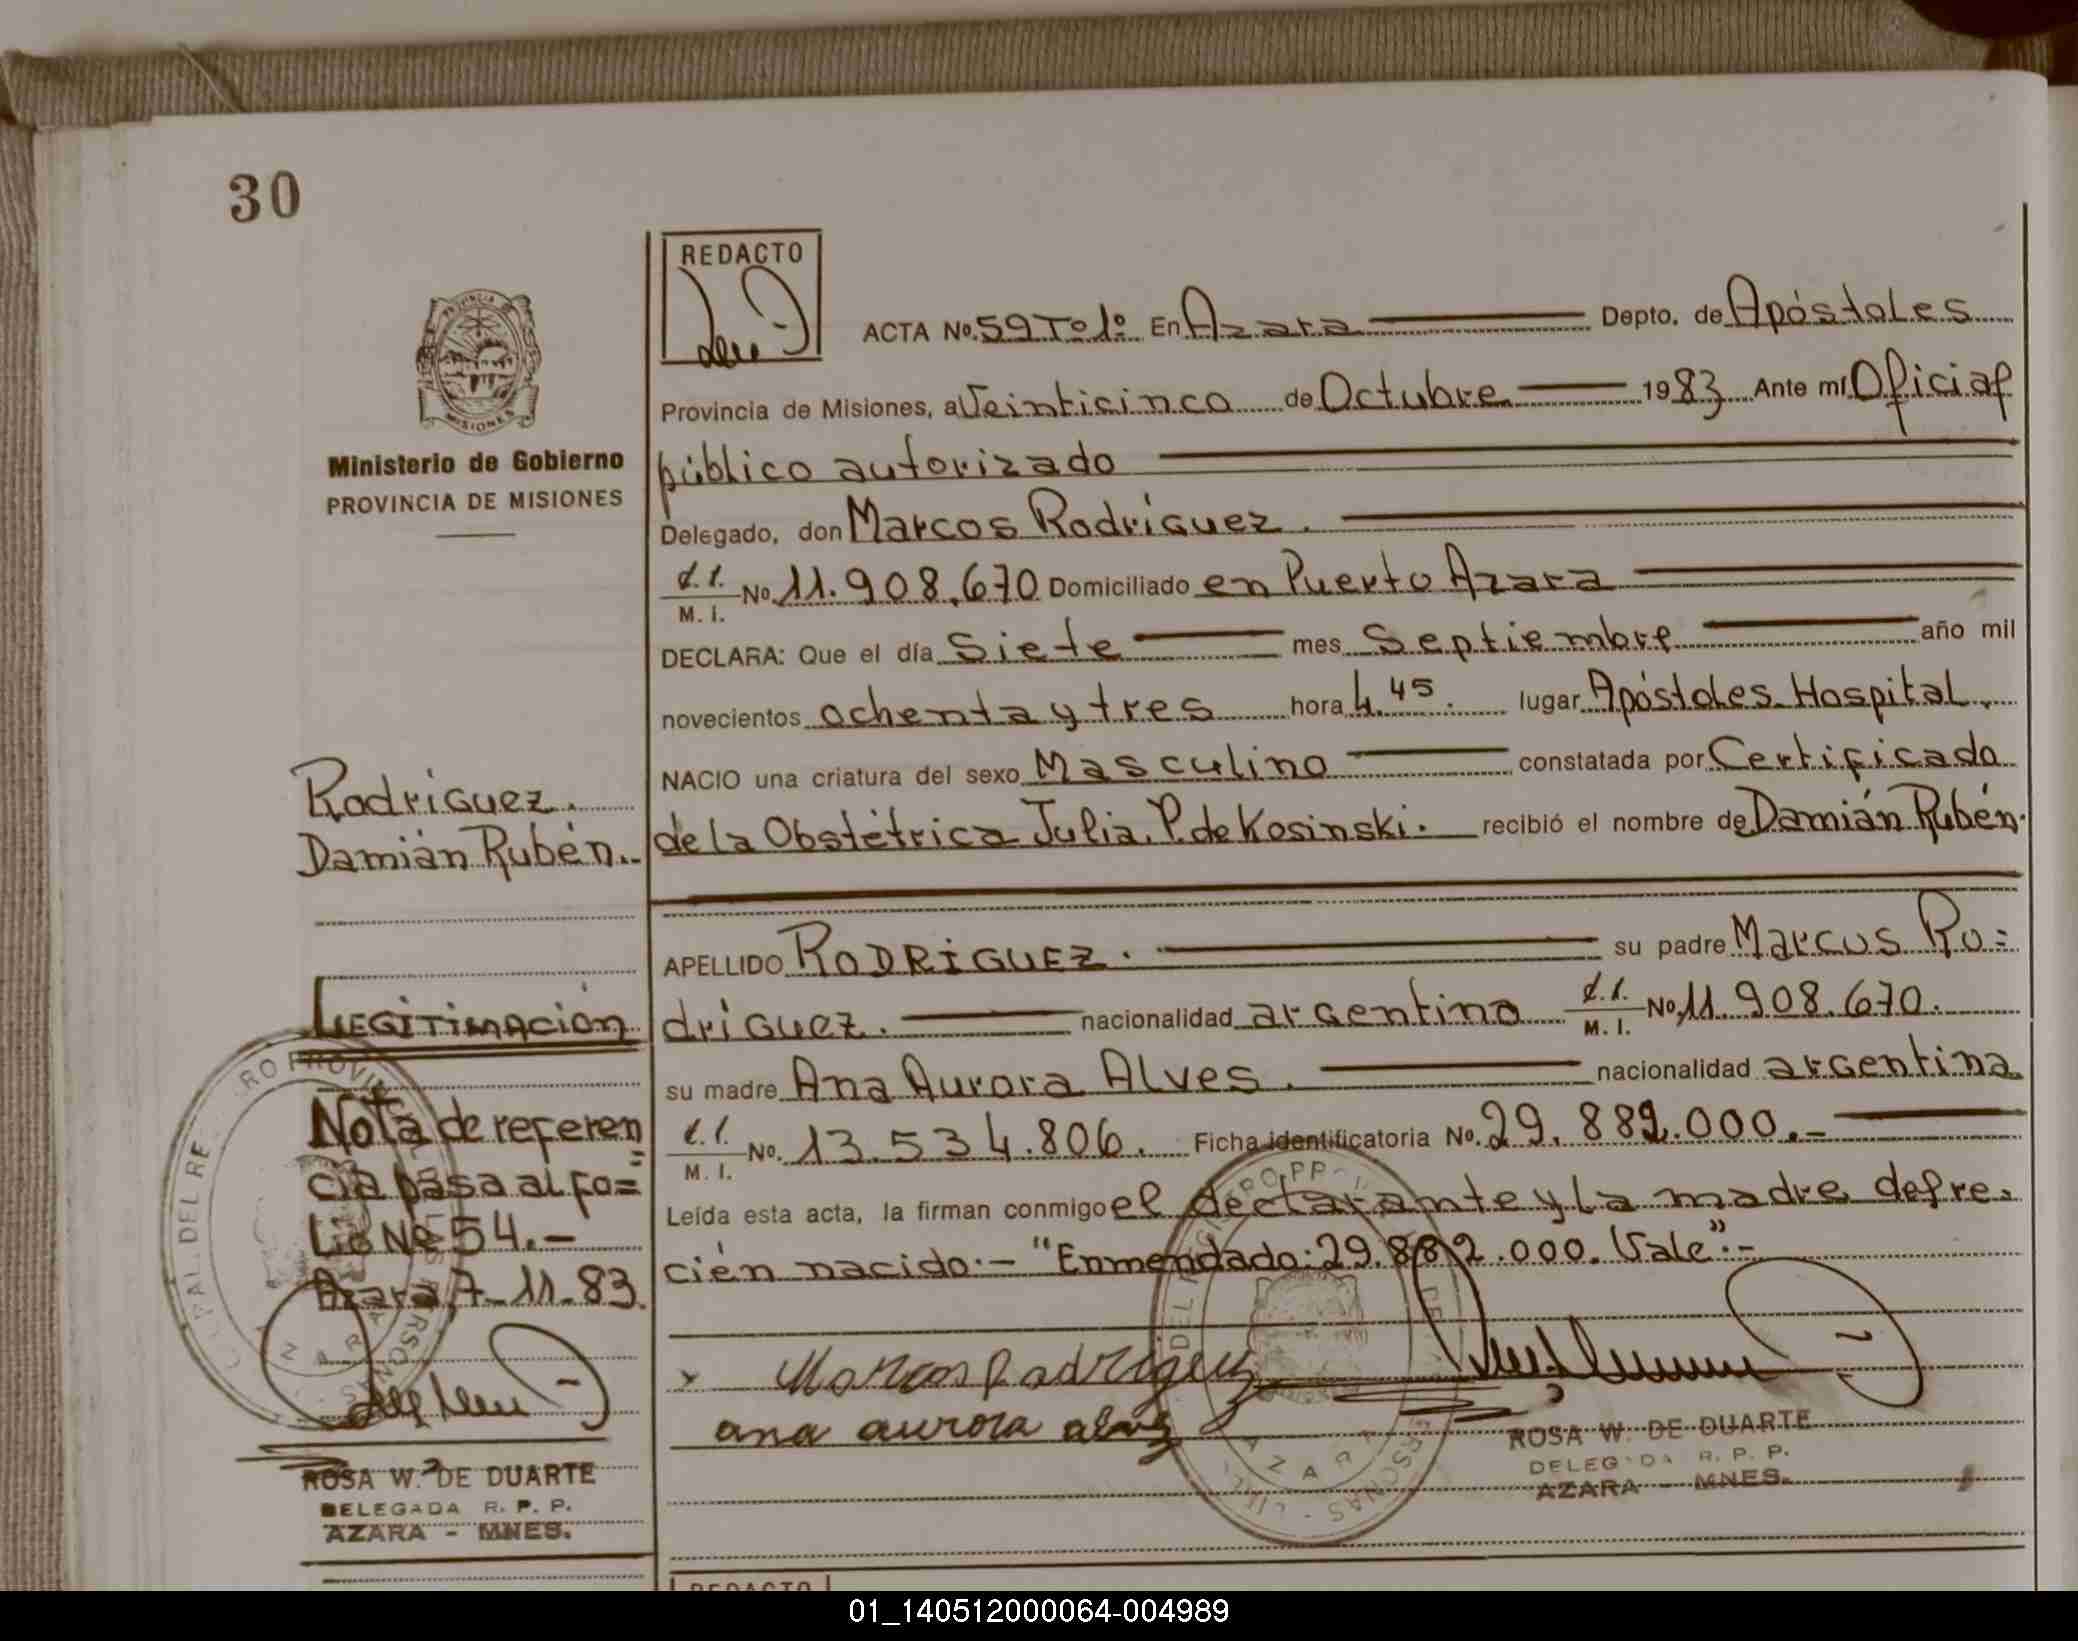 30
REDACTO
ACTA No. 59 To 1o En Azara Depto. de Apóstoles
Provincia de Misiones, a Veinticinco de Octubre 1983 Ante mí Oficial
público autorizado
Delegado, don Marcos Rodríguez.
M. I. No. 11.908.670 Domiciliado en Puerto Azara
DECLARA: Que el día Siete mes Septiembre año mil
novecientos ochenta y tres hora 4.45. lugar Apóstoles Hospital.
NACIO una criatura del sexo Masculino constatada por Certificado
de la Obstétrica Julia P. de Kosinski. recibió el nombre de Damián Rubén.
APELLIDO RODRíGUEZ. su padre Marcos Ro=
dríguez. nacionalidad argentino M. I. No. 11.908.670.
su madre Ana Aurora Alves. nacionalidad argentina
M. I. No. 13.534.806. Ficha identificatoria No. 29.882.000.-
Leída esta acta, la firman conmigo el declarante y la madre del re.
cién nacido.- "Enmendado: 29.882.000. Vale".-
Marcos Rodriguez
ana aurora alves
ROSA W. DE DUARTE
DELEGADA R. P. P.
AZARA - MNES.
PROVINCIA DE MISIONES
Ministerio de Gobierno
PROVINCIA DE MISIONES
Rodríguez.
Damián Rubén.
LEGITIMACIÓN
Nota de referen
cia pasa al fo=
lio No 54.-
Azara, 7-11-83.
ROSA W. DE DUARTE
DELEGADA R. P. P.
AZARA - MNES.
REDACTO
01_140512000064-004989